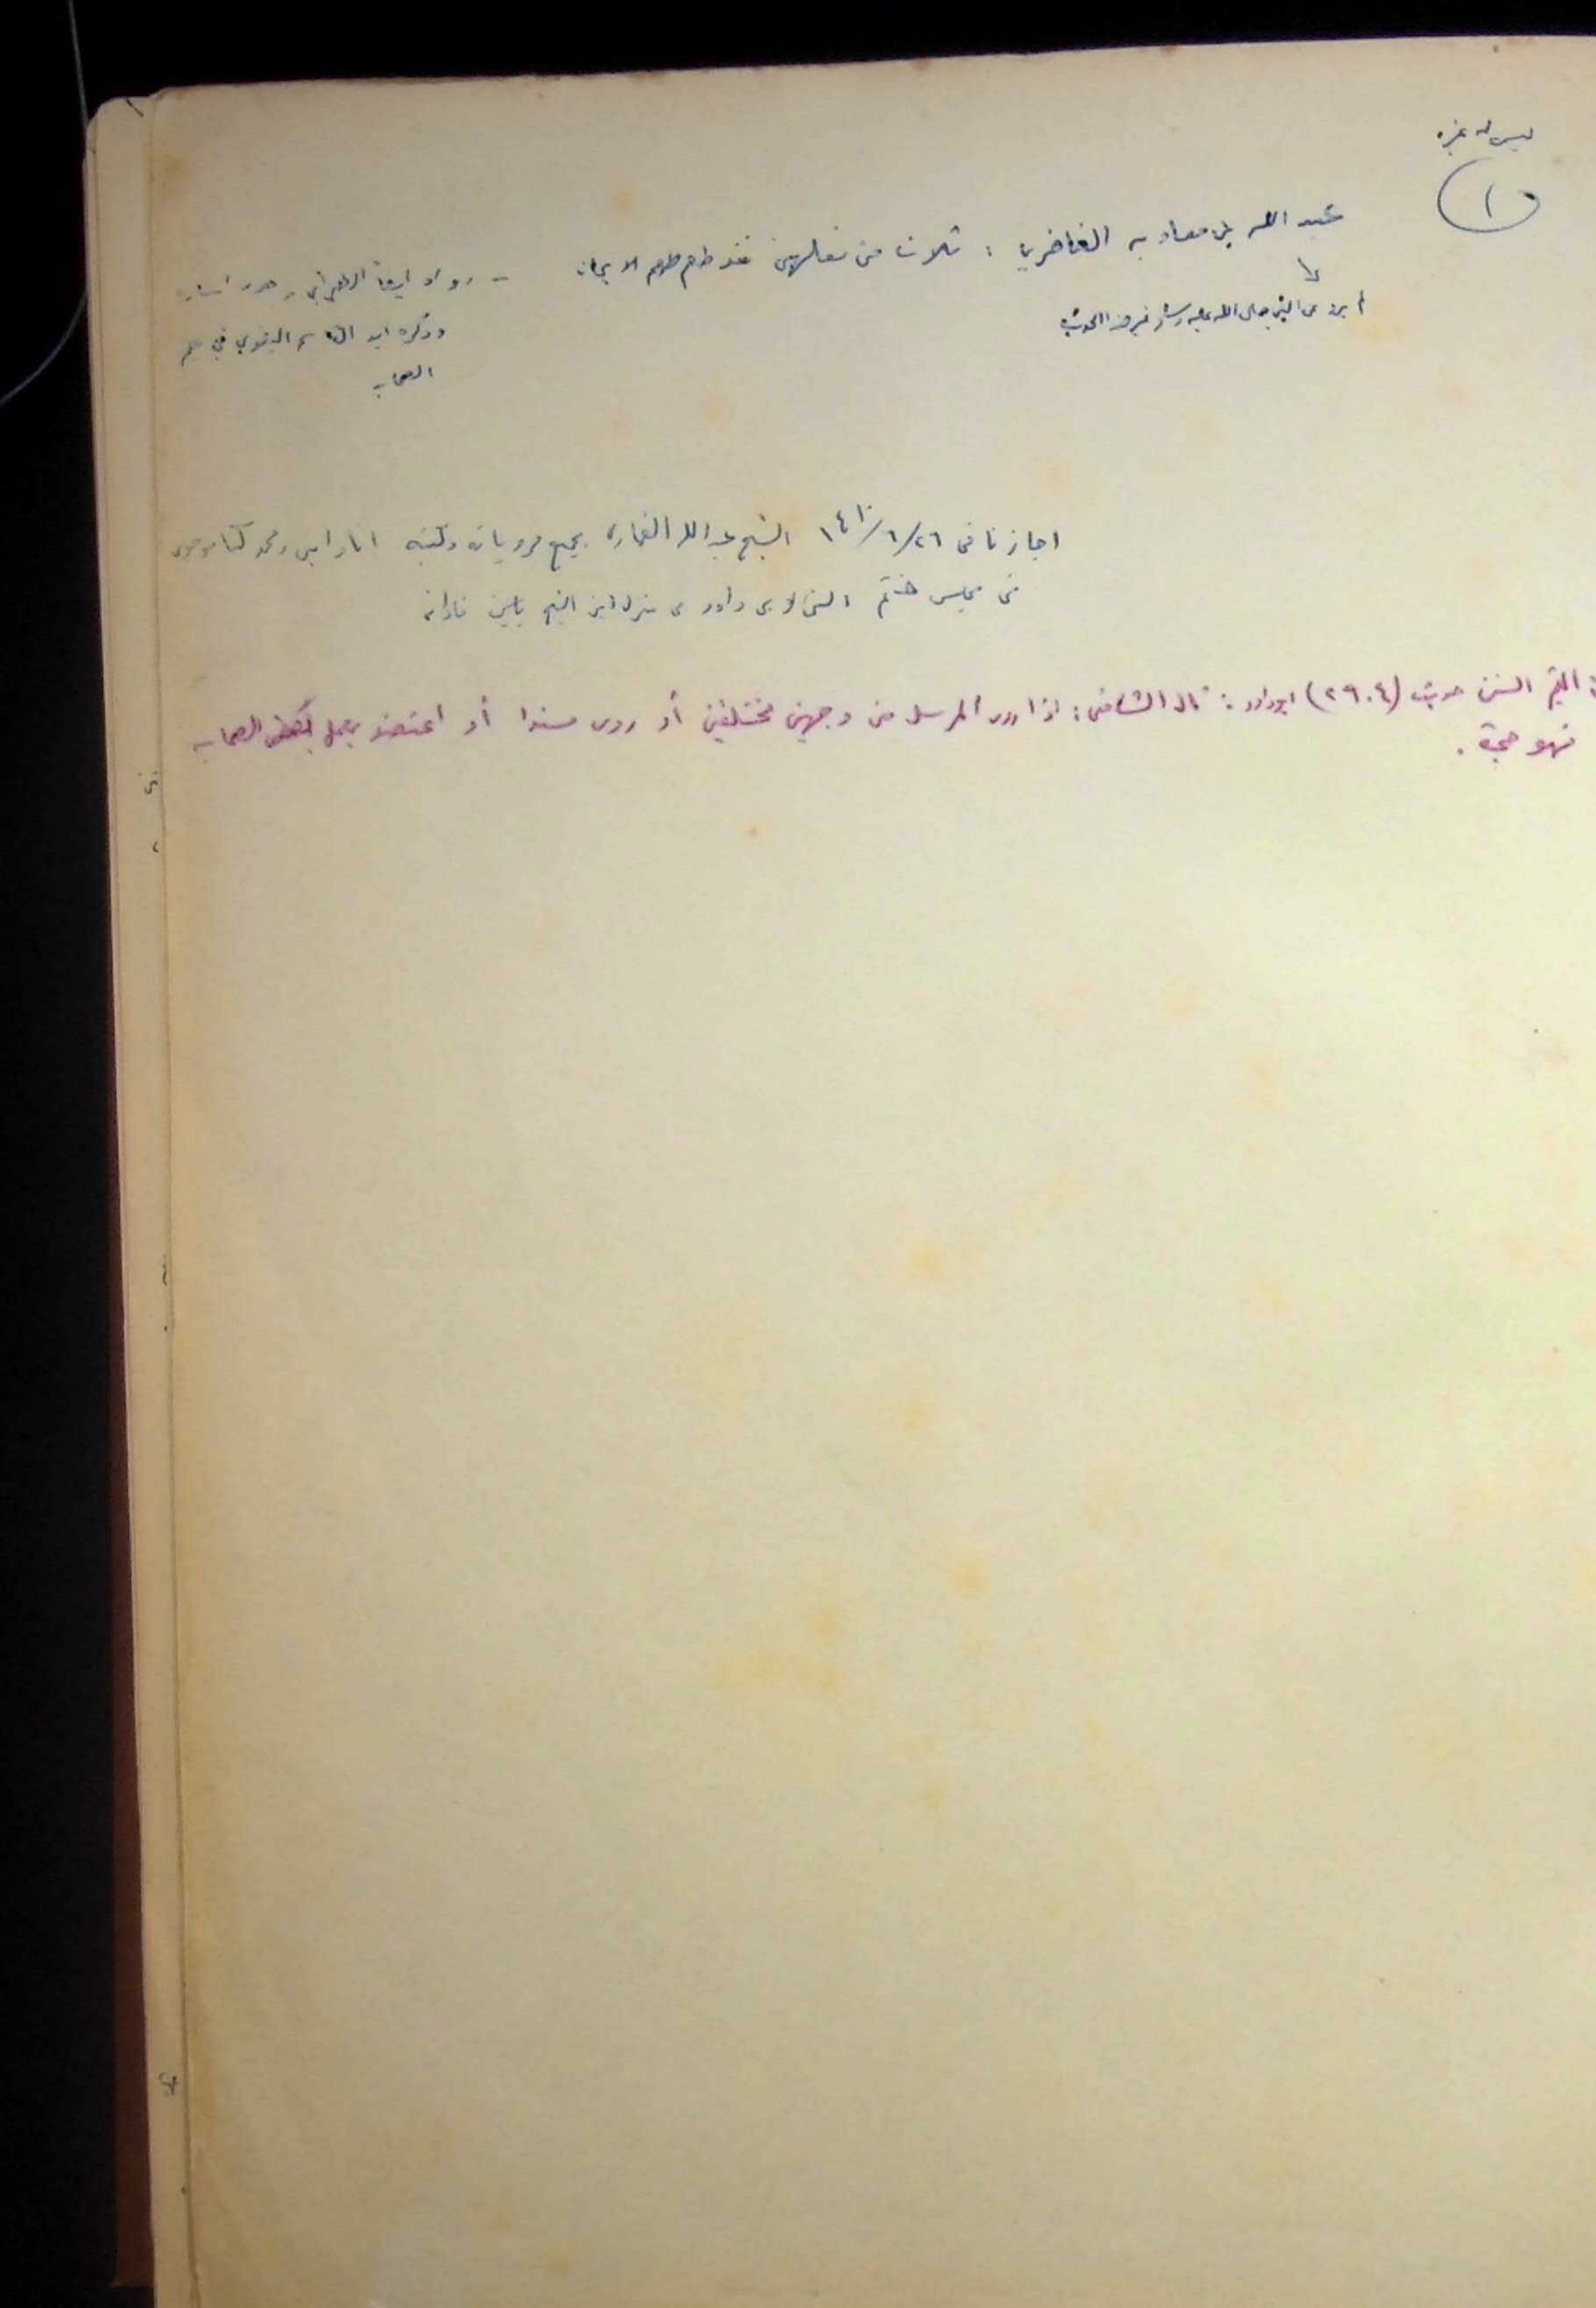 ليس له غيره
١
عبد الله بن معاوية الغاضري : ثلاث من فعلهن فقد طعم طعم الايمان
لم يرو عن النبي صلى الله عليه وسلم غير هذا الحديث
- رواه ايضاً الطبراني وجود اسناده
وذكره ابو القاسم البغوي في معجم
الصحابة
اجازنا في ٢٦/٦/١٤١٠ الشيخ عبد الله الغماري بجميع مروياته وكتبه انا وابني ومحمد
في مجلس ختم السنن لابي داود في منزل ابن الشيخ ياسين فاداني
ابن القيم السنن حديث (٢٩٠٤) ابوداود : قال الشافعي : اذا روى المرسل من وجهين مختلفين أو روى مسندا أو اعتضد بعمل بعض الصحابة
فهو حجة .